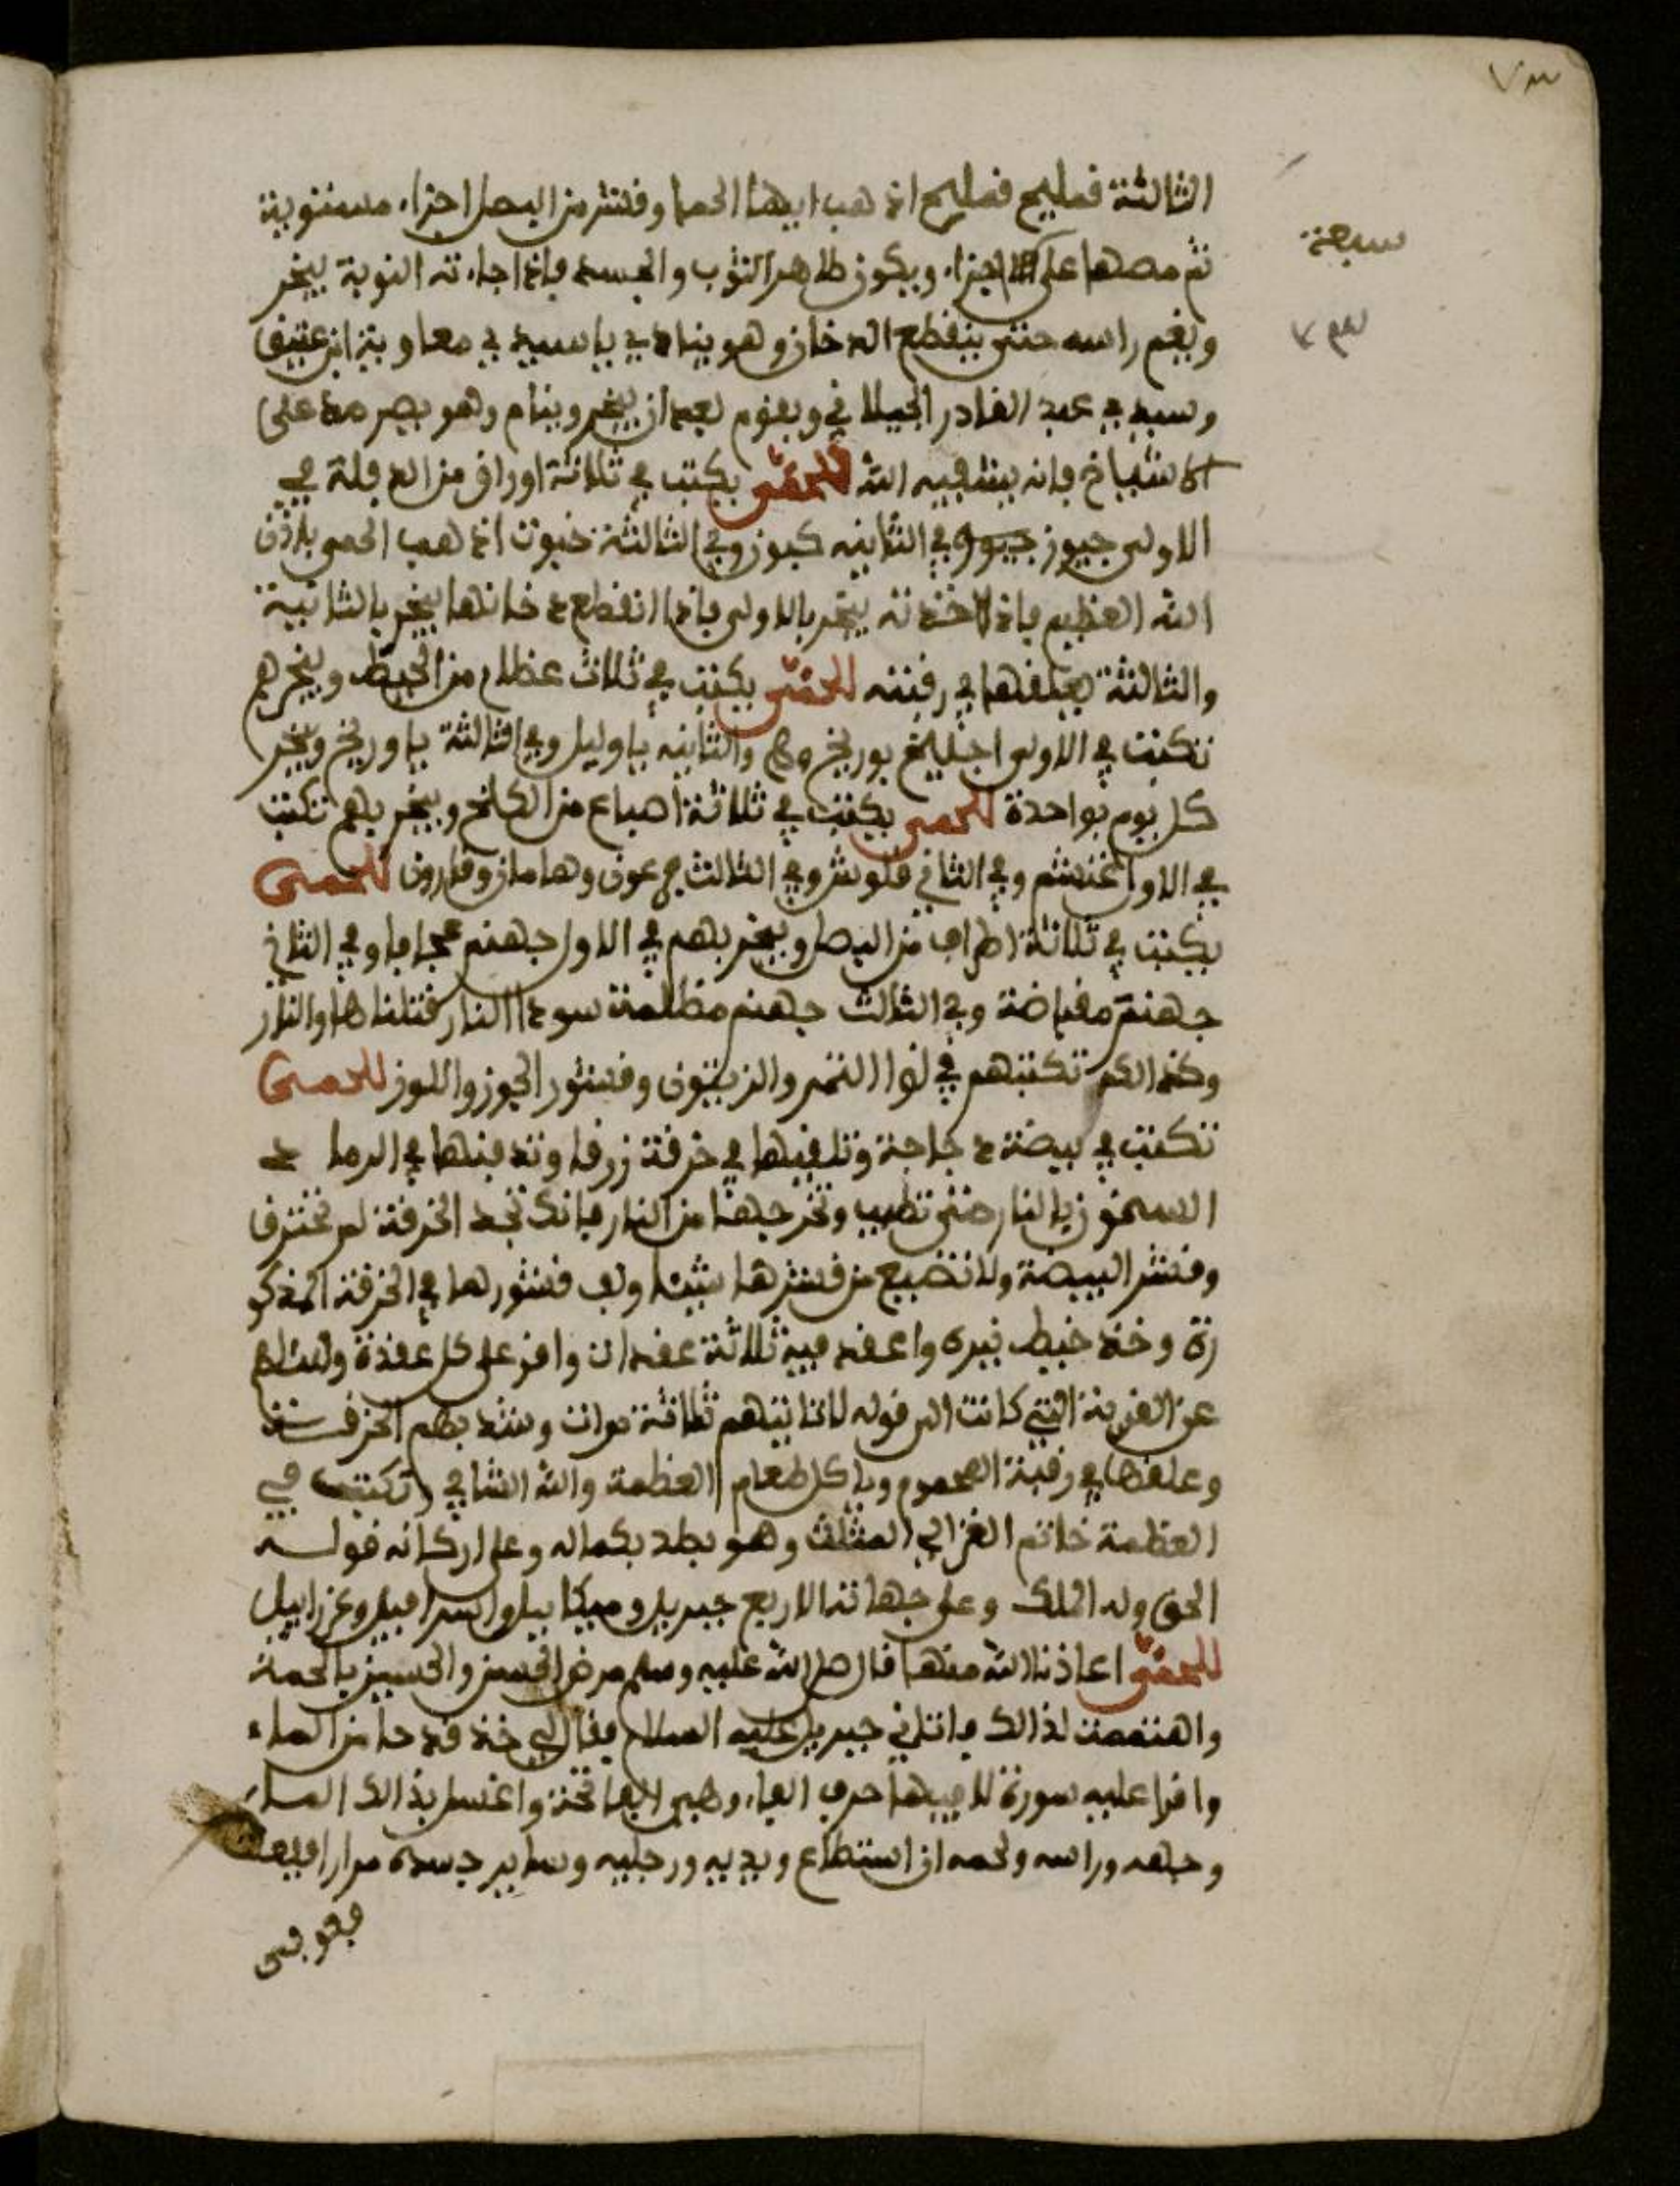 ٧٣
الثالثة فمليح فمليح اذهب ايها الحما وقشر من البصل اجزاء مستوية
سبعة
ثم مصها على الاجزاء ويكون طاهر الثوب والجسد فاذا جاءته النوبة يبخر
ويغم راسه حتى ينقطع الدخان وهو ينادي يا سيدي معاوية ابن عتيق
وسيدي عبد القادر الجيلاني ويقوم بعد ان يبخر وينام وهو يصر مدة على
الاشياخ فانه يشفيه الله للحمى يكتب في ثلاثة اوراق من الدفلة في
الاولى جيوز وفي الثانيه كبوز وفي الثالثة خبوت اذهب الحمى باذن
الله العظيم فاذا اخذته يبخر بالاولى فاذا انقطع دخانها يبخر بالثانية
والثالثة يعلقها في رقبته للحمى يكتب في ثلاث عظام من الحيط ويبخرهم
تكتب في الاولى بوريخ والثانيه ياوليل وفي الثالثة ياوريخ ويبخر
كل يوم بواحدة للحمى يكتب في ثلاثة اصباع من الكلخ ويبخر بهم تكتب
في الاول غنشم وفي الثاني قلوش وفي الثالث فرعون وهامان وقارون للحمى
يكتب في ثلاثة اطراف من البصل ويبخر بهم في الاول جهنم عجافا وفي الثاني
جهنم مفياضة وفي الثالث جهنم مظلمة سودا النار قتلناها والنار
وكذالك تكتبهم في نوا التمر والزيتون وقشور الجوز واللوز للحمى
تكتب في بيضة دجاجة وتلفيها في خرقة زرقا وتدفنها في الرماد
السخون بالنار حتى تطيب وتخرجها من النار فانك تجد الخرقة لم تحترق
وقشر البيضة ولا تضيع من قشرها شيئا ولف قشورها في الخرقة المذكو
رة وخذ خيط نيره واعقد فيه ثلاثة عقدات واقر على كل عقدة وسئلهم
عن القرية التي كانت الى قوله لا تاتيهم ثلاثة مرات وشد بهم الخرقة
وعلقها في رقبة المحموم وياكل طعام العظمة والله الشافي تكتب في
العظمة خاتم الغزالي المثلث وهو بطد بكماله وعلى اركانه قوله
الحق وله الملك وعلى جهاته الاربع جبريل وميكاييل واسرافيل وعزراييل
للحمى اعاذنا الله منها قال صلى الله عليه وسلم مرض الحسن والحسين بالحمة
واهتممت لذالك فاتاني جبريل عليه السلام فقال لي خذ قدحا من الماء
واقرا عليه سورة لا فيها حرف الفاء وهي الفاتحة واغسل بذالك الماء
وجهه وراسه ولحمه ان استطاع ويديه ورجليه وساير جسده مرارا
فعوفى